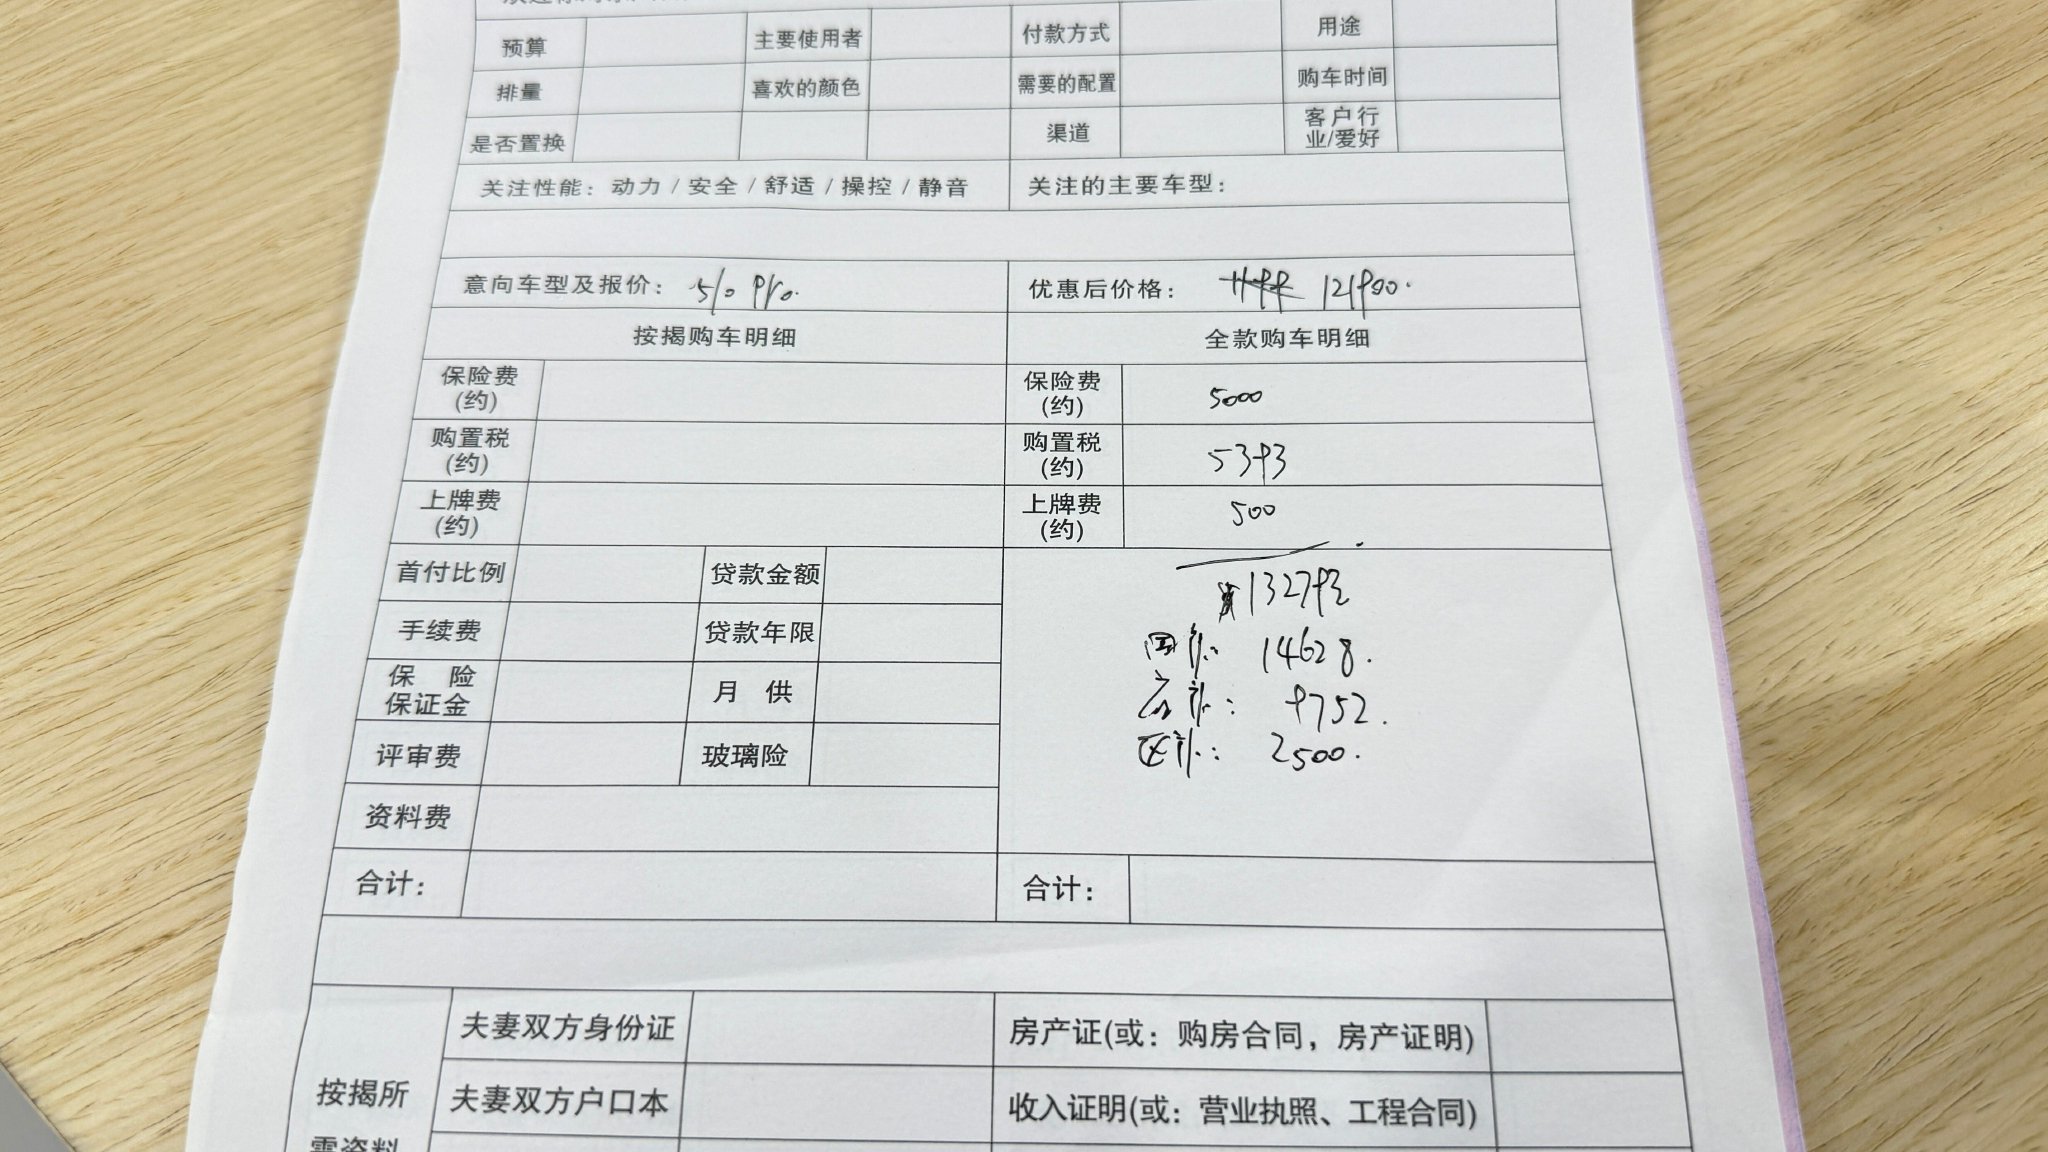 预算 主要使用者 付款方式 用途
排量 喜欢的颜色 需要的配置 购车时间
是否置换 渠道 客户行业/爱好
关注性能：动力/安全/舒适/操控/静音 关注的主要车型：
意向车型及报价：510 pro. 优惠后价格：121900.
按揭购车明细 全款购车明细
保险费(约) 保险费(约) 5000
购置税(约) 购置税(约) 5393
上牌费(约) 上牌费(约) 500
首付比例 贷款金额 132793
手续费 贷款年限 国补: 14628.
保险保证金 月供 厂补: 9752.
评审费 玻璃险 区补: 2500.
资料费
合计： 合计：
夫妻双方身份证 房产证(或：购房合同，房产证明)
按揭所 夫妻双方户口本 收入证明(或：营业执照、工程合同)
需资料